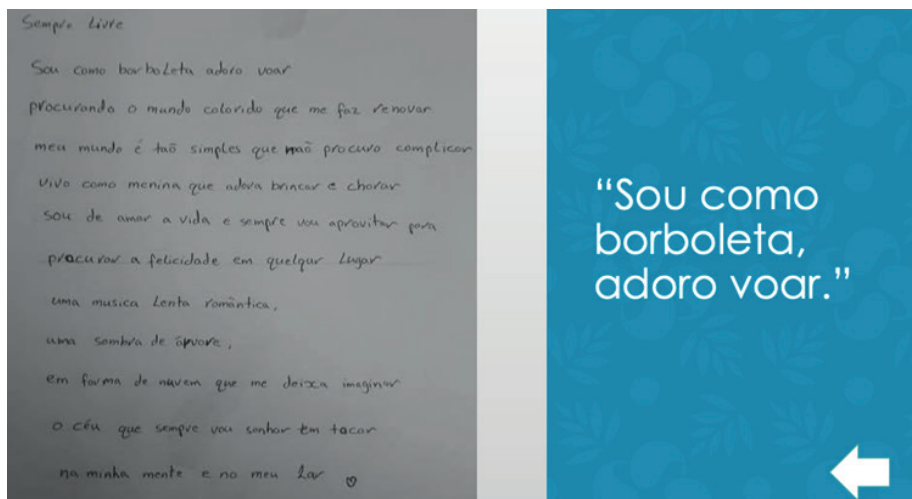 Sempre Livre
Sou como borboleta adoro voar
procurando o mundo colorido que me faz renovar
meu mundo é taõ simples que naõ procuro complicar
vivo como menina que adora brincar e chorar
sou de amar a vida e sempre vou aprovitar para
procurar a felicidade em quelqur lugar
uma musica lenta romântica,
uma sombra de árvore,
em forma de nuvem que me deixa imaginar
o céu que sempre vou sonhar em tocar
na minha mente e no meu lar
“Sou como
borboleta,
adoro voar.”